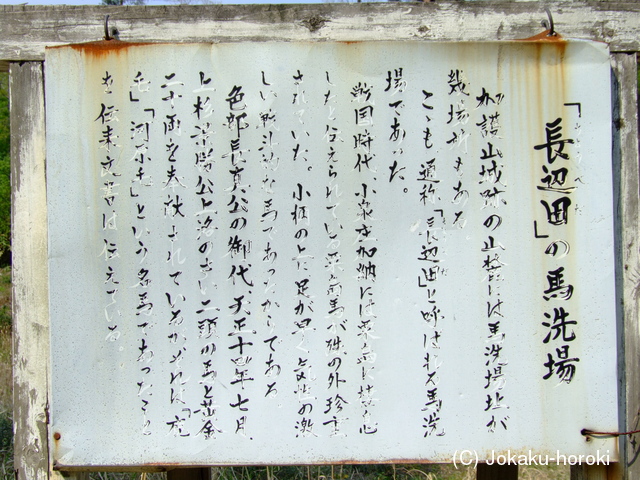 「長辺田」の馬洗場
加護山城跡の山麓には馬洗場址が
幾場所もある
ここも通称「長辺田」と呼ばれる馬洗
場であった。
戦国時代、小泉庄加納には
したと伝えられている 馬が殊の外珍重
されていた。小柄の上に足が早く気性の激
しい戦斗的な馬であったからである
色部長真公の御代天正十四年七月
上杉景勝公上洛の 二頭の馬と黄金
二十両を奉献されている
毛」「河原毛」という名馬であったこと
を伝来文書は伝えている。
(C) Jokaku-horoki